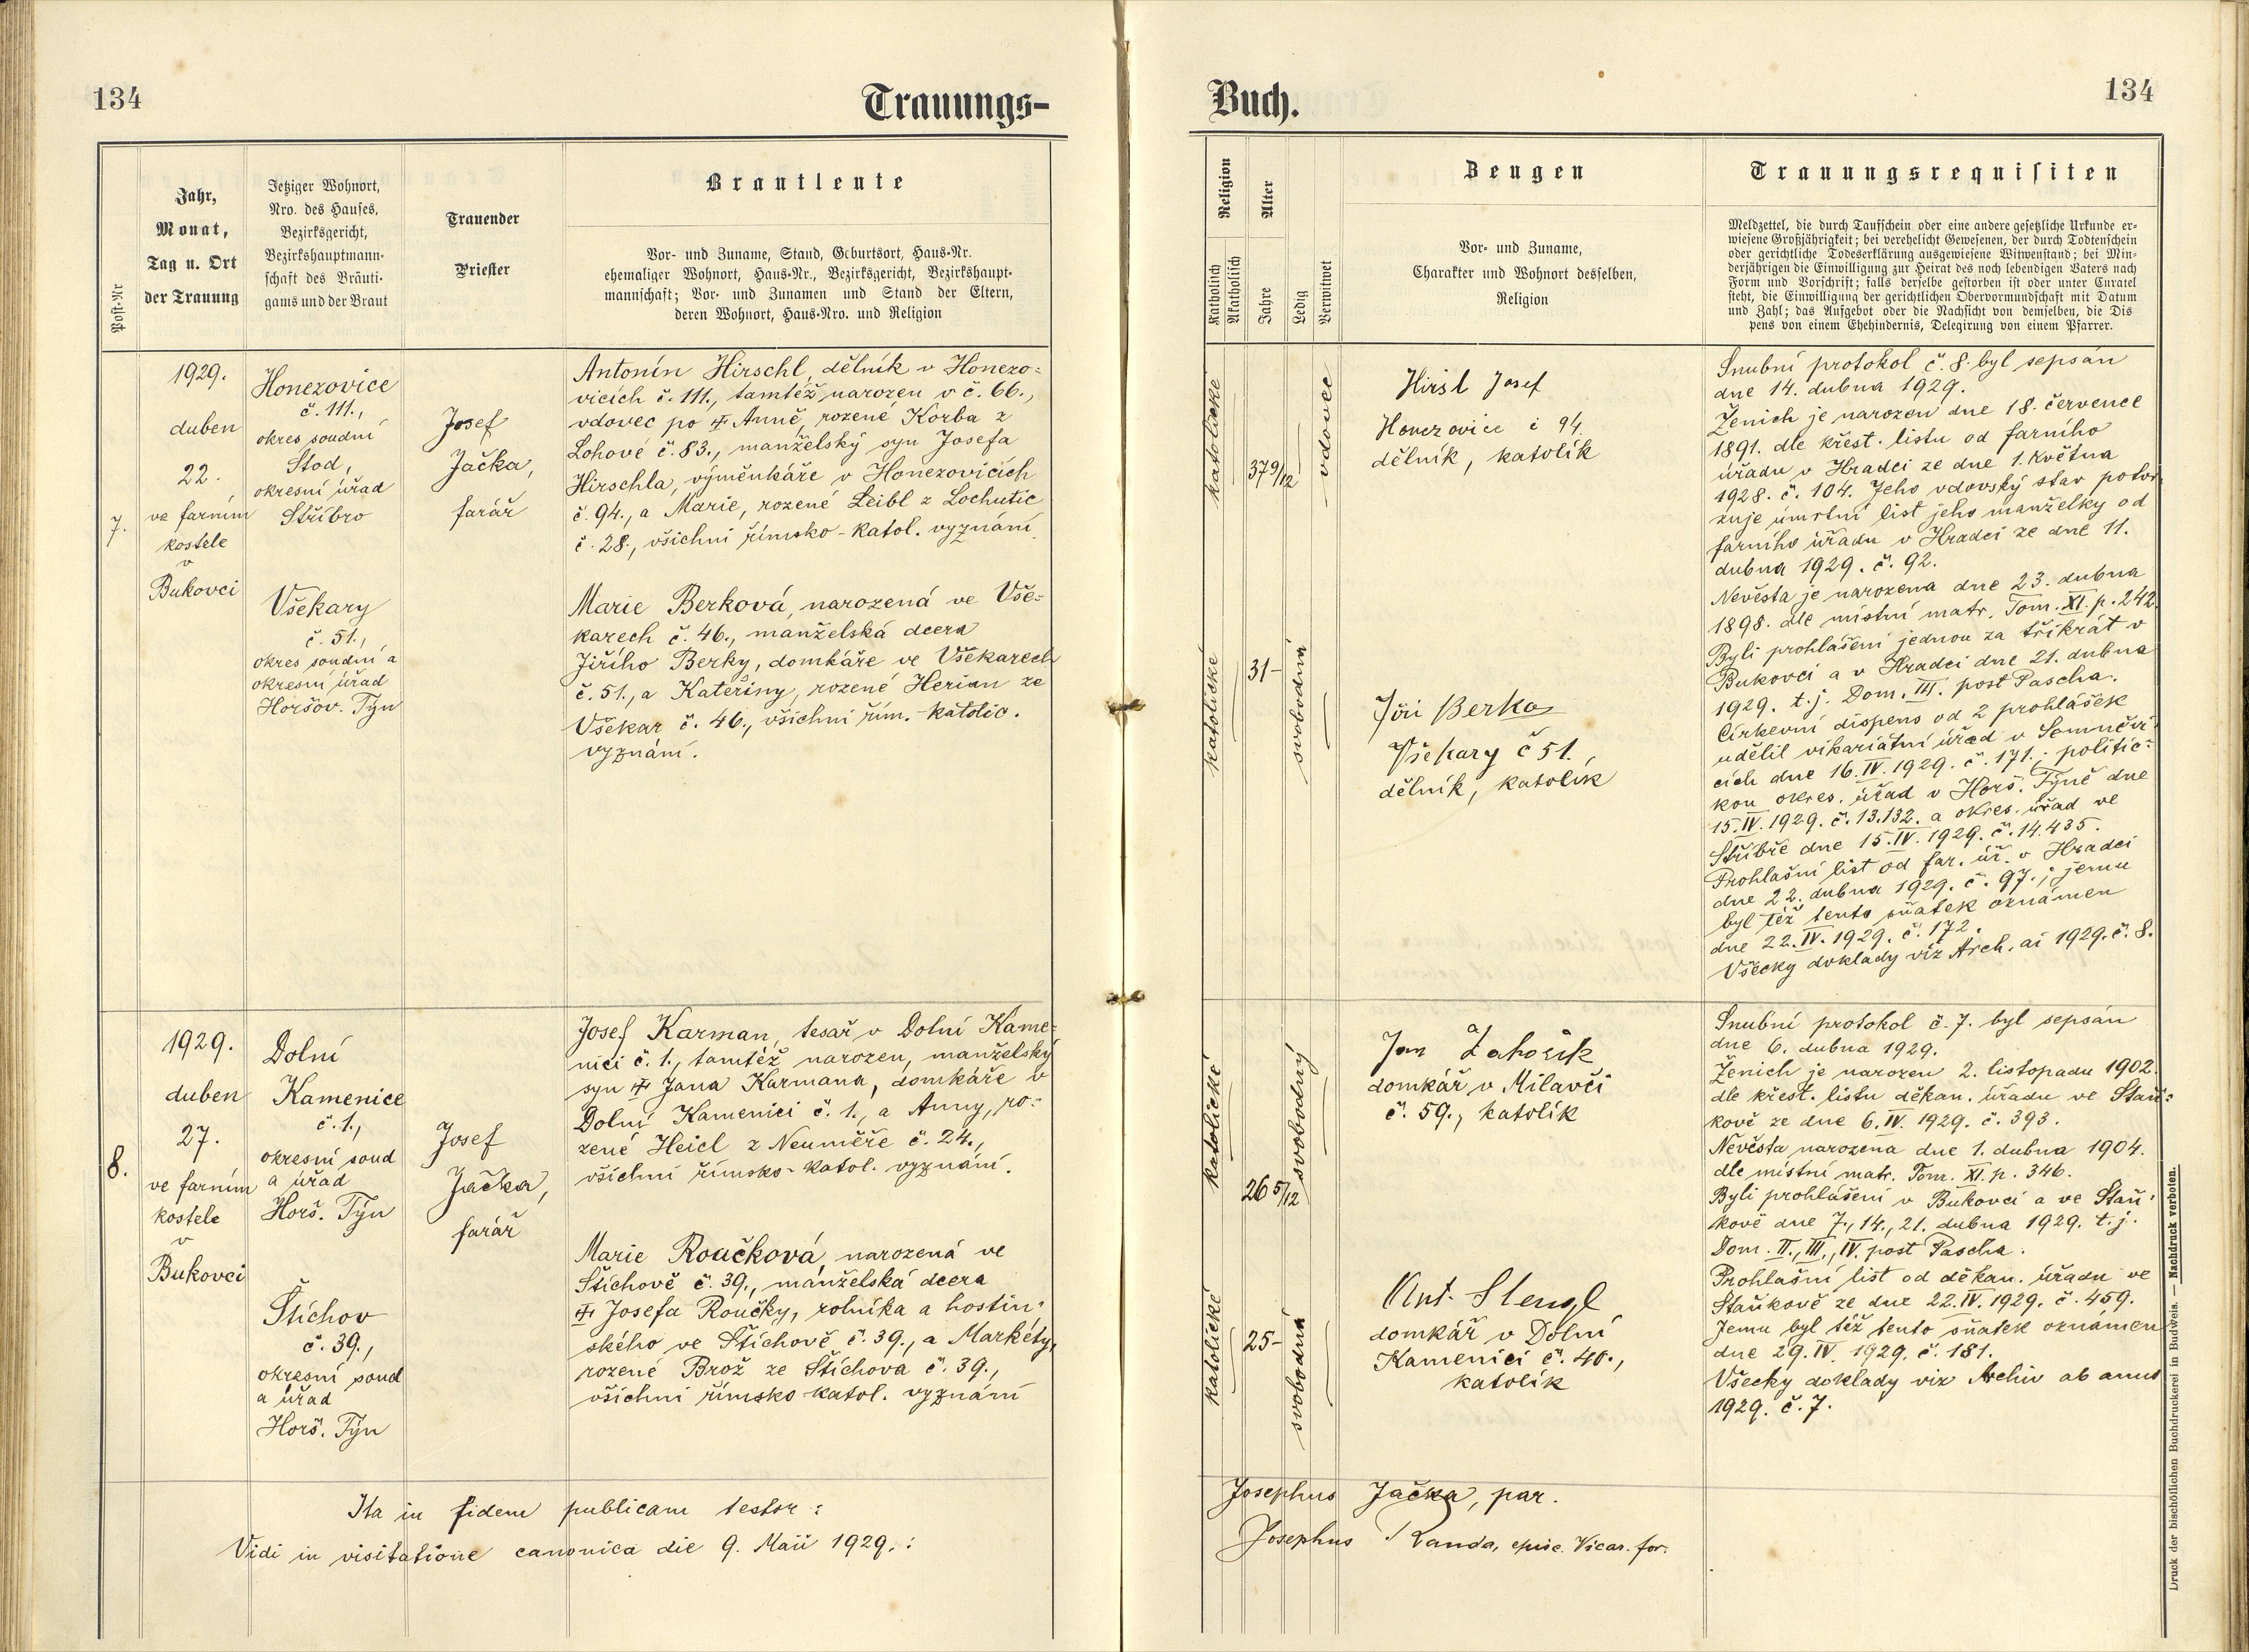 134
Trauungs-
Post-Nr
Jahr,
Monat,
Tag u. Ort
der Trauung
Jetziger Wohnort,
Nro. des Hauses,
Bezirksgericht,
Bezirkshauptmann-
schaft des Bräuti-
gams und der Braut
Trauender
Priester
Brautleute
Vor- und Zuname, Stand, Geburtsort, Haus-Nr.
ehemaliger Wohnort, Haus-Nr., Bezirksgericht, Bezirkshaupt-
mannschaft; Vor- und Zunamen und Stand der Eltern,
deren Wohnort, Haus-Nro. und Religion
7.
1929.
duben
22.
ve farním
kostele
v
Bukovci
Honezovice
č. 111.,
okres soudní
Stod,
okresní úřad
Stříbro
Všekary
č. 51.,
okres soudní a
okresní úřad
Horšov. Týn
Josef
Jačka,
farář
Antonín Hirschl, dělník v Honezo-
vicích č. 111., tamtéž narozen v č. 66.,
vdovec po ✝ Anně, rozené Korba z
Lohové č. 83., manželský syn Josefa
Hirschla, výměnkáře v Honezovicích
č. 94., a Marie, rozené Leibl z Lochutic
č. 28., všichni římsko-katol. vyznání.
Marie Berková, narozená ve Vše-
karech č. 46., manželská dcera
Jiřího Berky, domkáře ve Všekarech
č. 51., a Kateřiny, rozené Herian ze
Všekar č. 46., všichni řím.-katolic.
vyznání.
8.
1929.
duben
27.
ve farním
kostele
v
Bukovci
Dolní
Kamenice
č. 1.,
okresní soud
a úřad
Horš. Týn
Štichov
č. 39.,
okresní soud
a úřad
Horš. Týn
Josef
Jačka,
farář
Josef Karman, tesař v Dolní Kame-
nici č. 1., tamtéž narozen, manželský
syn ✝ Jana Karmana, domkáře v
Dolní Kamenici č. 1., a Anny, ro-
zené Heicl z Neuměře č. 24.,
všichni římsko-katol. vyznání.
Marie Roučková, narozená ve
Štichově č. 39., manželská dcera
✝ Josefa Roučky, rolníka a hostin-
ského ve Štichově č. 39., a Markéty,
rozené Brož ze Štichova č. 39.,
všichni římsko-katol. vyznání
Ita in fidem publicam testor:
Vidi in visitatione canonica die 9. Maii 1929.:
Buch.
134
Religion
Katholisch
Akatholisch
Alter
Jahre
Ledig
Verwitwet
Zeugen
Vor- und Zuname,
Charakter und Wohnort desselben,
Religion
Trauungsrequisiten
Meldzettel, die durch Taufschein oder eine andere gesetzliche Urkunde er-
wiesene Großjährigkeit; bei verehelicht Gewesenen, der durch Todtenschein
oder gerichtliche Todeserklärung ausgewiesene Witwenstand; bei Min-
derjährigen die Einwilligung zur Heirat des noch lebendigen Vaters nach
Form und Vorschrift; falls derselbe gestorben ist oder unter Curatel
steht, die Einwilligung der gerichtlichen Obervormundschaft mit Datum
und Zahl; das Aufgebot oder die Nachsicht von demselben, die Dis
pens von einem Ehehindernis, Delegirung von einem Pfarrer.
katolické
37 9/12
vdovec
Hiršl Josef
Honezovice č 94.
dělník, katolík
katolické
31-
svobodná
Jiří Berka
Všekary č 51.
dělník, katolík
Snubní protokol č. 8. byl sepsán
dne 14. dubna 1929.
Ženich je narozen dne 18. července
1891. dle křest. listu od farního
úřadu v Hradci ze dne 1. května
1928. č. 104. Jeho vdovský stav potvr-
zuje úmrtní list jeho manželky od
farního úřadu v Hradci ze dne 11.
dubna 1929. č. 92.
Nevěsta je narozena dne 23. dubna
1898. dle místní matr. Tom. XI. p. 242.
Byli prohlášeni jednou za třikrát v
Bukovci a v Hradci dne 21. dubna
1929. t. j. Dom. III. post Pascha.
Církevní dispens od 2 prohlášek
udělil vikariátní úřad v Semněvi-
cích dne 16. IV. 1929. č. 171.; politic-
kou okres. úřad v Horš. Týně dne
15. IV. 1929. č. 13.132. a okres. úřad ve
Stříbře dne 15. IV. 1929. č. 14.435.
Prohlašní list od far. úř. v Hradci
dne 22. dubna 1929. č. 97.; jemu
byl též tento sňatek oznámen
dne 22. IV. 1929. č. 172.
Všecky doklady viz Arch. ai 1929. č. 8.
katolické
26 5/12
svobodný
Jan Záhořík
domkář v Milavči
č. 59., katolík
katolické
25-
svobodná
Ant. Stengl
domkář v Dolní
Kamenici č. 40.,
katolík
Snubní protokol č. 7. byl sepsán
dne 6. dubna 1929.
Ženich je narozen 2. listopadu 1902.
dle křest. listu děkan. úřadu ve Staň-
kově ze dne 6. IV. 1929. č. 393.
Nevěsta narozena dne 1. dubna 1904.
dle místní matr. Tom. XI. p. 346.
Byli prohlášeni v Bukovci a ve Staň-
kově dne 7., 14., 21. dubna 1929. t. j.
Dom. II., III., IV. post Pascha.
Prohlašní list od děkan. úřadu ve
Staňkově ze dne 22. IV. 1929. č. 459.
Jemu byl též tento sňatek oznámen
dne 29. IV. 1929. č. 181.
Všecky doklady viz Archiv ab anno
1929. č. 7.
Josephus Jačka, par.
Josephus Randa, episc. Vicar. for.
Druck der bischöflichen Buchdruckerei in Budweis. — Nachdruck verboten.